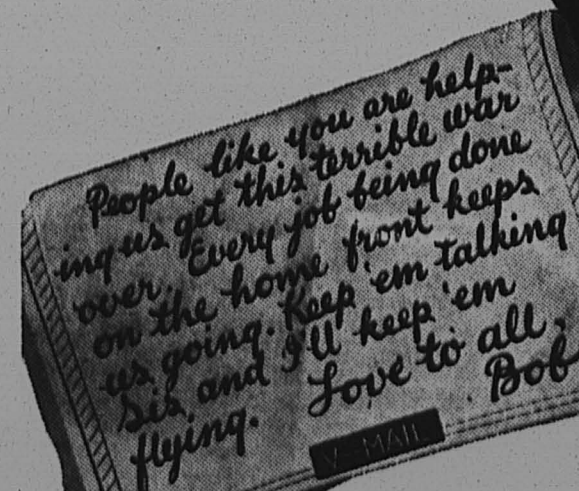 People like you are help-
ing us get this terrible war
over. Every job being done
on the home front keeps
us going. Keep 'em talking
Sis, and I'll keep 'em
flying. Love to all.
Bob
V-MAIL